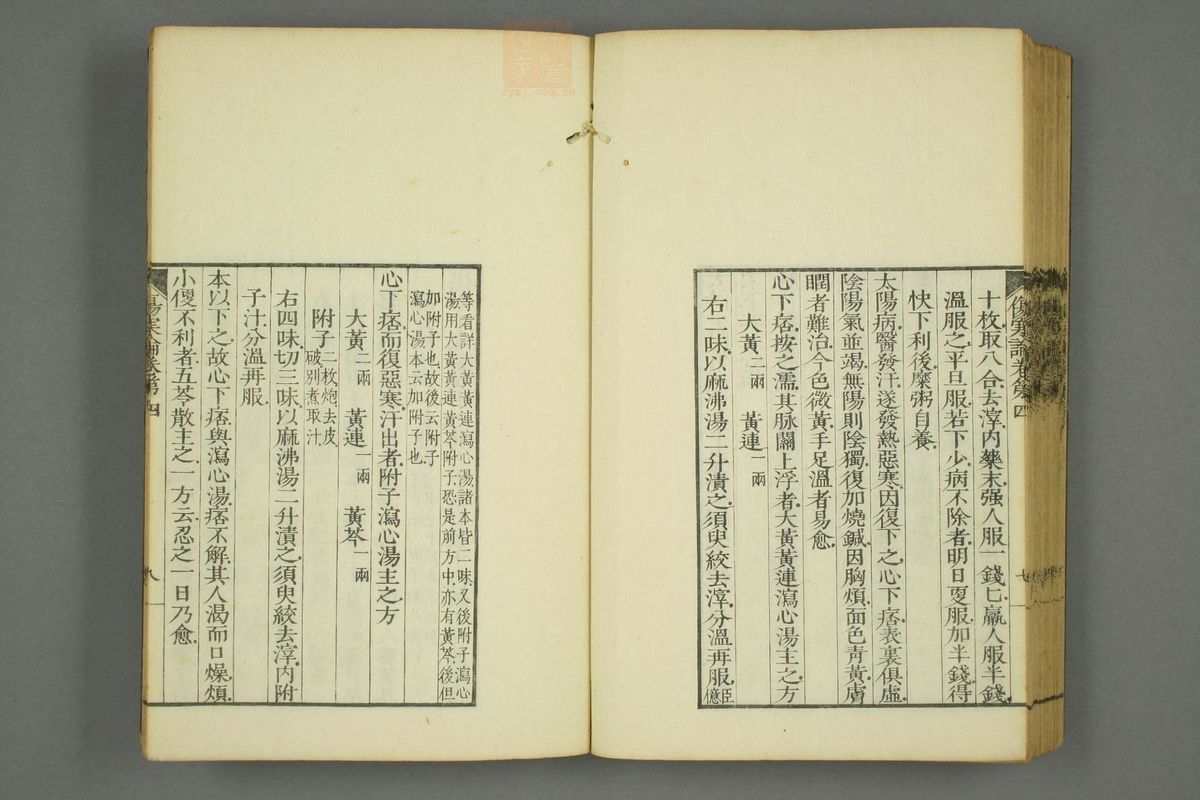 傷寒論卷第四
十枚取八合去滓內藥末强人服一錢匕羸人服半錢
溫服之平旦服若下少病不除者明日更服加半錢得
快下利後糜粥自養
太陽病醫發汗遂發熱惡寒因復下之心下痞表裏俱虛
陰陽氣並竭無陽則陰獨復加燒鍼因胸煩面色青黃膚
瞤者難治今色微黃手足溫者易愈
心下痞按之濡其脉關上浮者大黃黃連瀉心湯主之方
大黃二兩 黃連一兩
右二味以麻沸湯二升漬之須臾絞去滓分溫再服臣億
七
等看詳大黃黃連瀉心湯諸本皆二味又後附子瀉心
湯用大黃黃連黃芩附子恐是前方中亦有黃芩後但
加附子也故後云附子
瀉心湯本云加附子也
心下痞而復惡寒汗出者附子瀉心湯主之方
大黃二兩 黃連一兩 黃芩一兩
附子二枚炮去皮
破別煮取汁
右四味切三味以麻沸湯二升漬之須臾絞去滓內附
子汁分溫再服
本以下之故心下痞與瀉心湯痞不解其人渴而口燥煩
小便不利者五苓散主之一方云忍之一日乃愈
傷寒論卷第四
八
zysj.com.cn